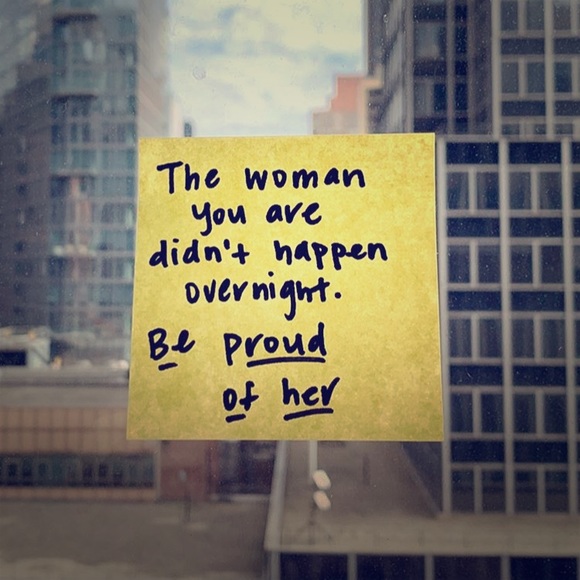 The woman
you are
didn't happen
overnight.
Be proud
of her